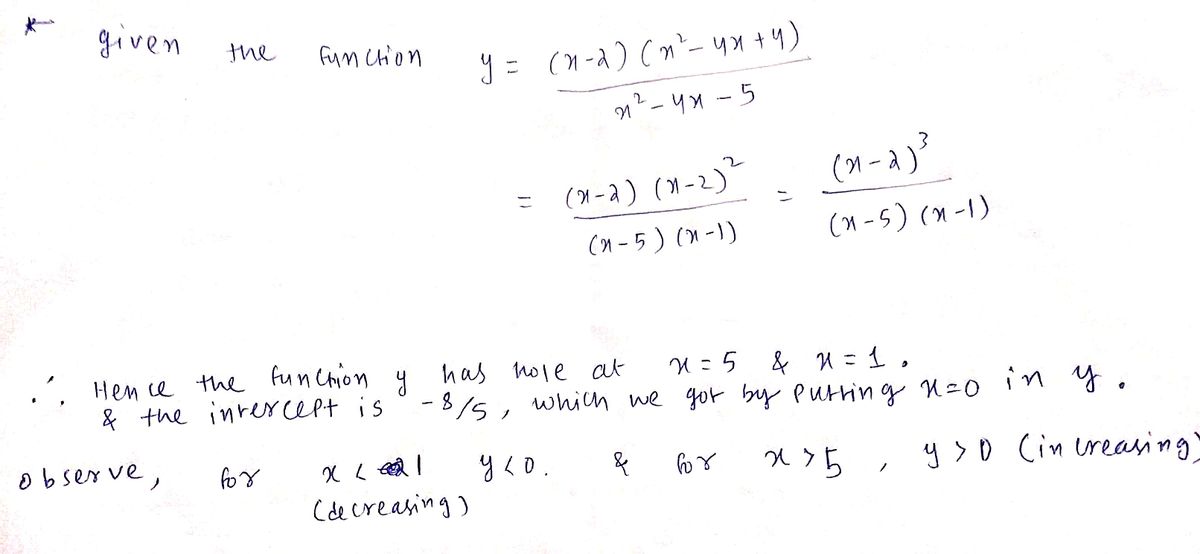 * given the function y = (x-2) (x²- 4x +4) / x² - 4x - 5
= (x-2) (x-2)² / (x-5) (x-1) = (x-2)³ / (x-5) (x-1)
∴ Hence the function y has hole at x = 5 & x = 1.
& the intercept is -8/5, which we got by putting x=0 in y.
observe, for x < 1 y < 0. & for x > 5, y > 0 (increasing)
(decreasing)